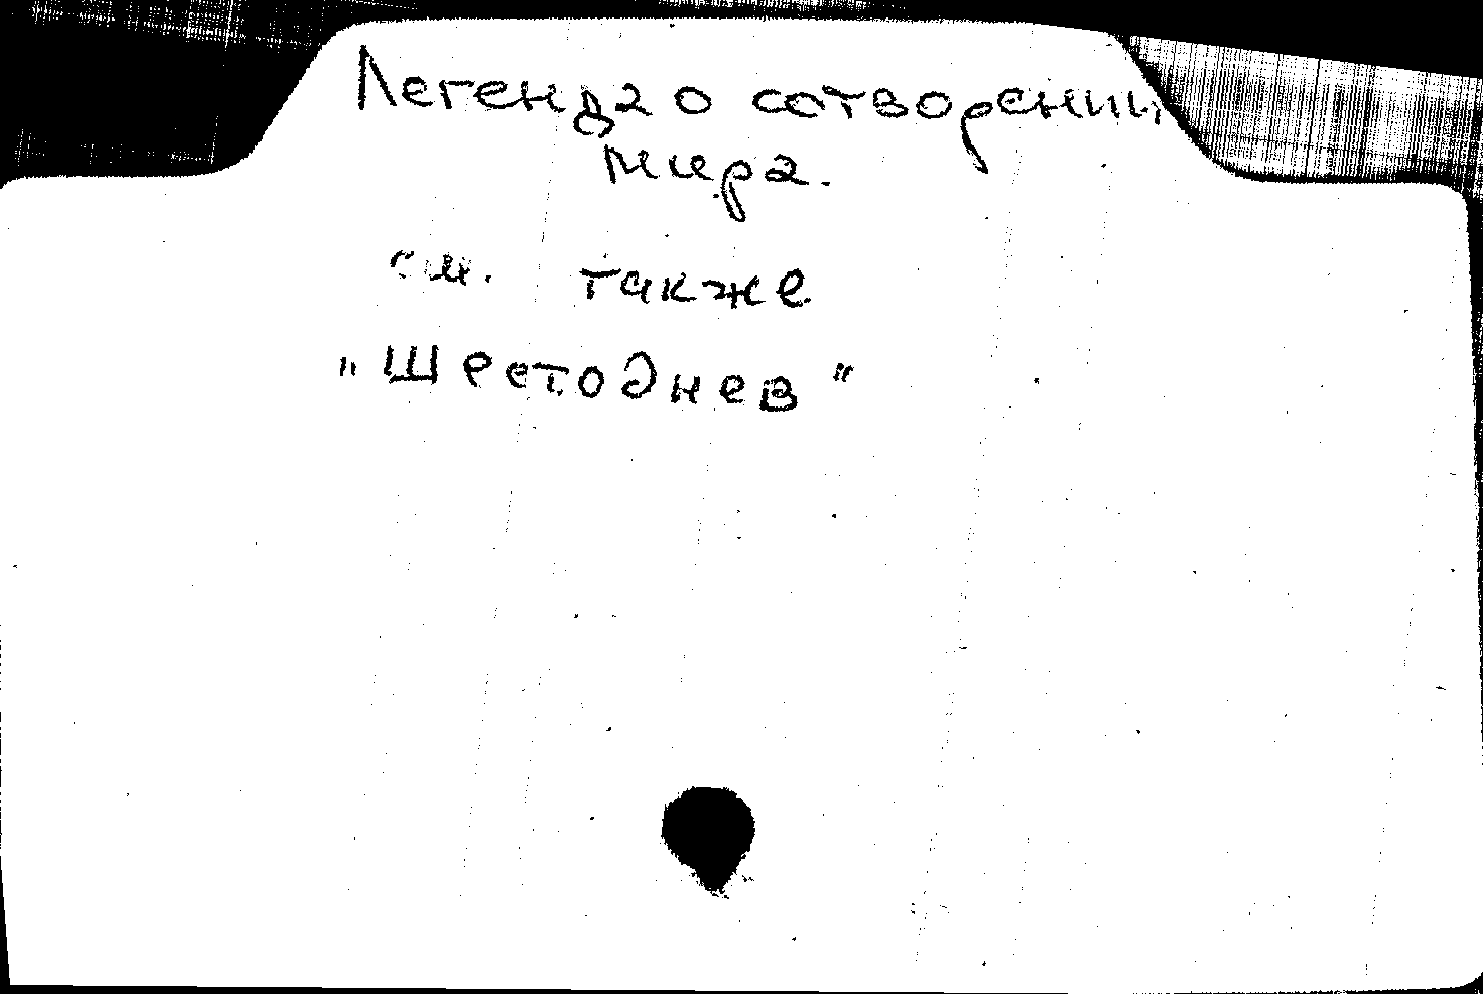 Легенда о сотворении
мира.
см. также
"Шестоднев"